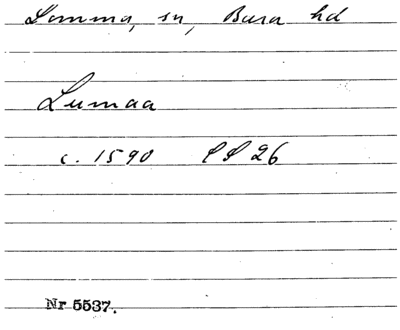 Lomma, sn, Bara hd
Lumaa
c. 1590 PS 26
Nr 5537.